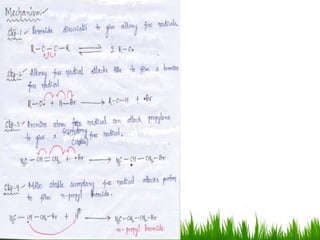 Mechanism
Step-1 Peroxide dissociates to give alkoxy free radicals
R-O-O-R ⇌ 2 R-O•
Step-2 Alkoxy free radical attacks HBr to give a bromine
free radical
R-O• + H-Br → R-O-H + •Br
Step-3 Bromine atom free radical can attack propylene
to give a secondary free radical.
(stable)
H₃C-CH=CH₂ + •Br → H₃C-CH-CH₂-Br
Step-4 More stable secondary free radical attacks proton
to form n-propyl bromide.
H₃C-CH-CH₂-Br + H → H₃C-CH₂-CH₂-Br
n-propyl bromide